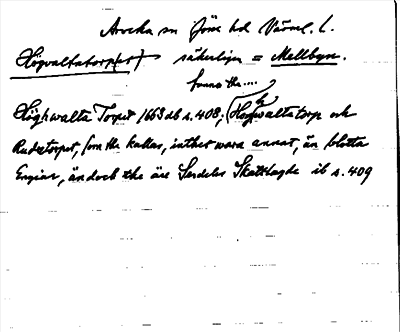 Arvika sn Jösse hd Värml. l.
Högvaltatorp(et) säkerligen = Mellbyn.
finns the....
Höghwalta Torpet 1663 db s. 408; (Högwaltatorp och
Rudztorpet, som the kallas, inthet wara annat, än blotta
Engiar, ändoch the äre Serdeles Skattlagde ib s. 409